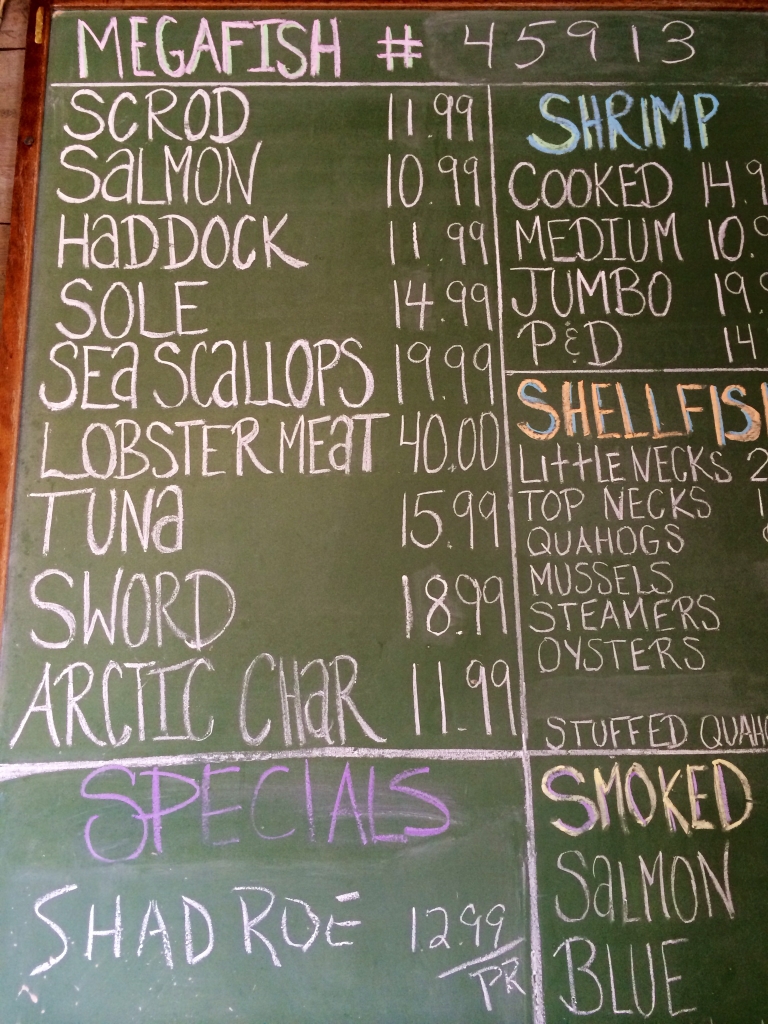 MEGAFISH # 45913
SCROD 11.99
SaLMON 10.99
HaDDOCK 11.99
SOLE 14.99
SEa SCaLLOPS 19.99
LOBSTER MEaT 40.00
TUNa 15.99
SWORD 18.99
ARCTIC CHaR 11.99
SPECIALS
SHAD ROE 12.99/PR
SHRIMP
COOKED 14.9
MEDIUM 10.9
JUMBO 19.
P&D 14
SHELLFIS
LittLE NECKS 2
TOP NECKS 1
QUAHOGS
MUSSELS
STEAMERS
OYSTERS
STUFFED QUAHO
SMOKED
SaLMON
BLUE